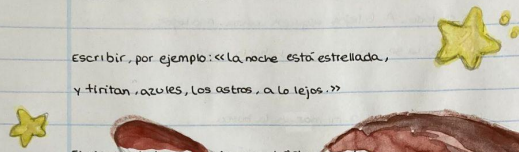 Escribir, por ejemplo: «La noche está estrellada,
y tiritan, azules, los astros, a lo lejos.»